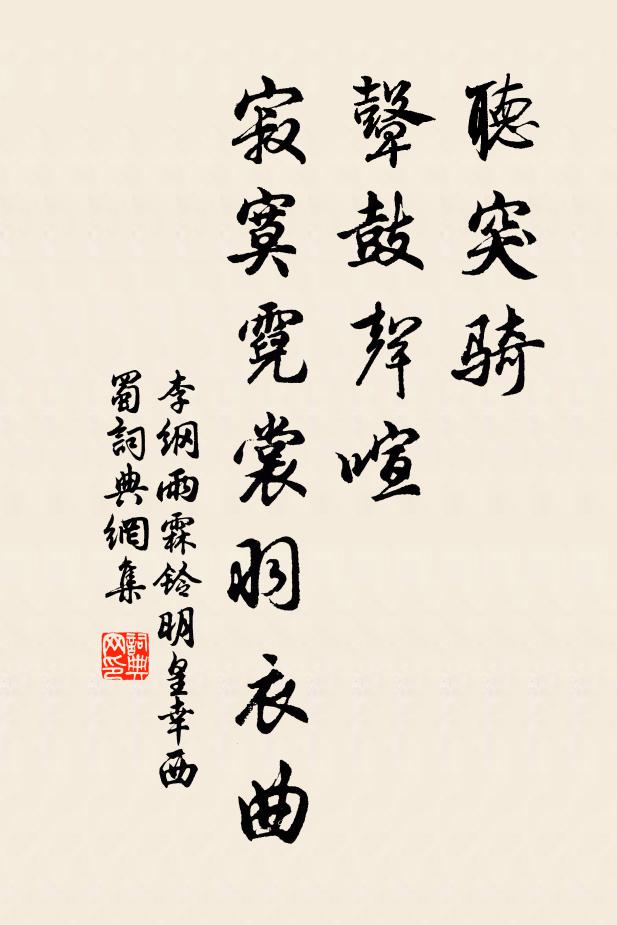 聽突騎
鼙鼓聲喧
寂寞霓裳羽衣曲
李綱雨霖鈴明皇幸西
蜀詞典網集
詞典
网印